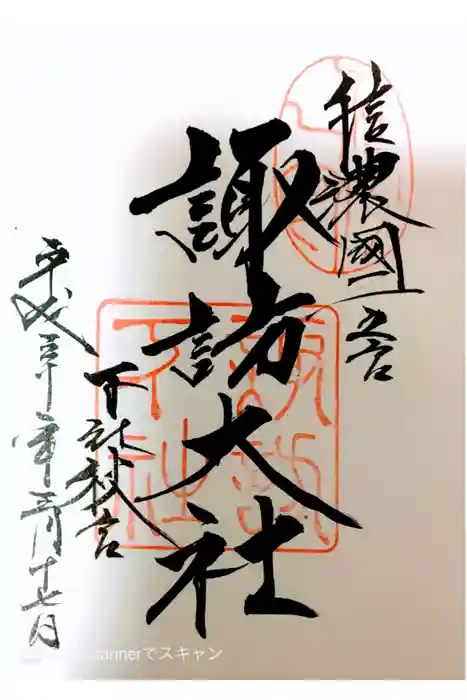 信濃國一之宮
諏訪大社
下社秋宮
平成三十年三月十七日
nnerでスキャン